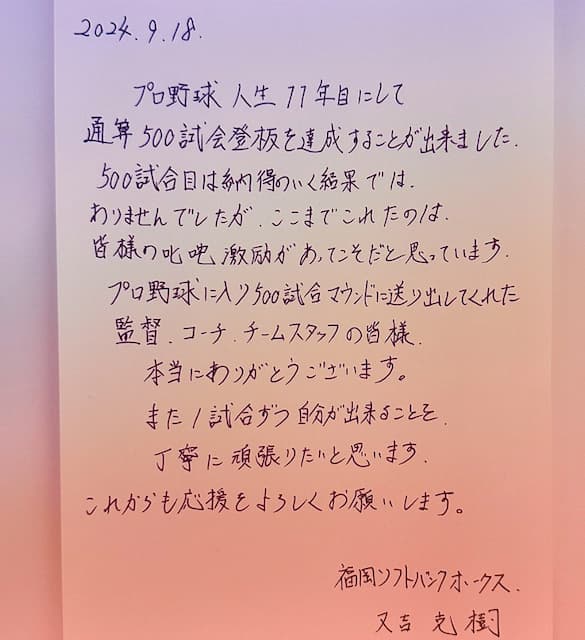 2024.9.18.
プロ野球人生11年目にして
通算500試合登板を達成することが出来ました.
500試合目は納得のいく結果では.
ありませんでしたが.ここまでこれたのは.
皆様の叱咤激励があってこそだと思っています.
プロ野球に入り500試合マウンドに送り出してくれた
監督.コーチ.チームスタッフの皆様.
本当にありがとうございます。
また1試合ずつ自分が出来ることを.
丁寧に頑張りたいと思います.
これからも応援をよろしくお願いします。
福岡ソフトバンクホークス.
又吉克樹